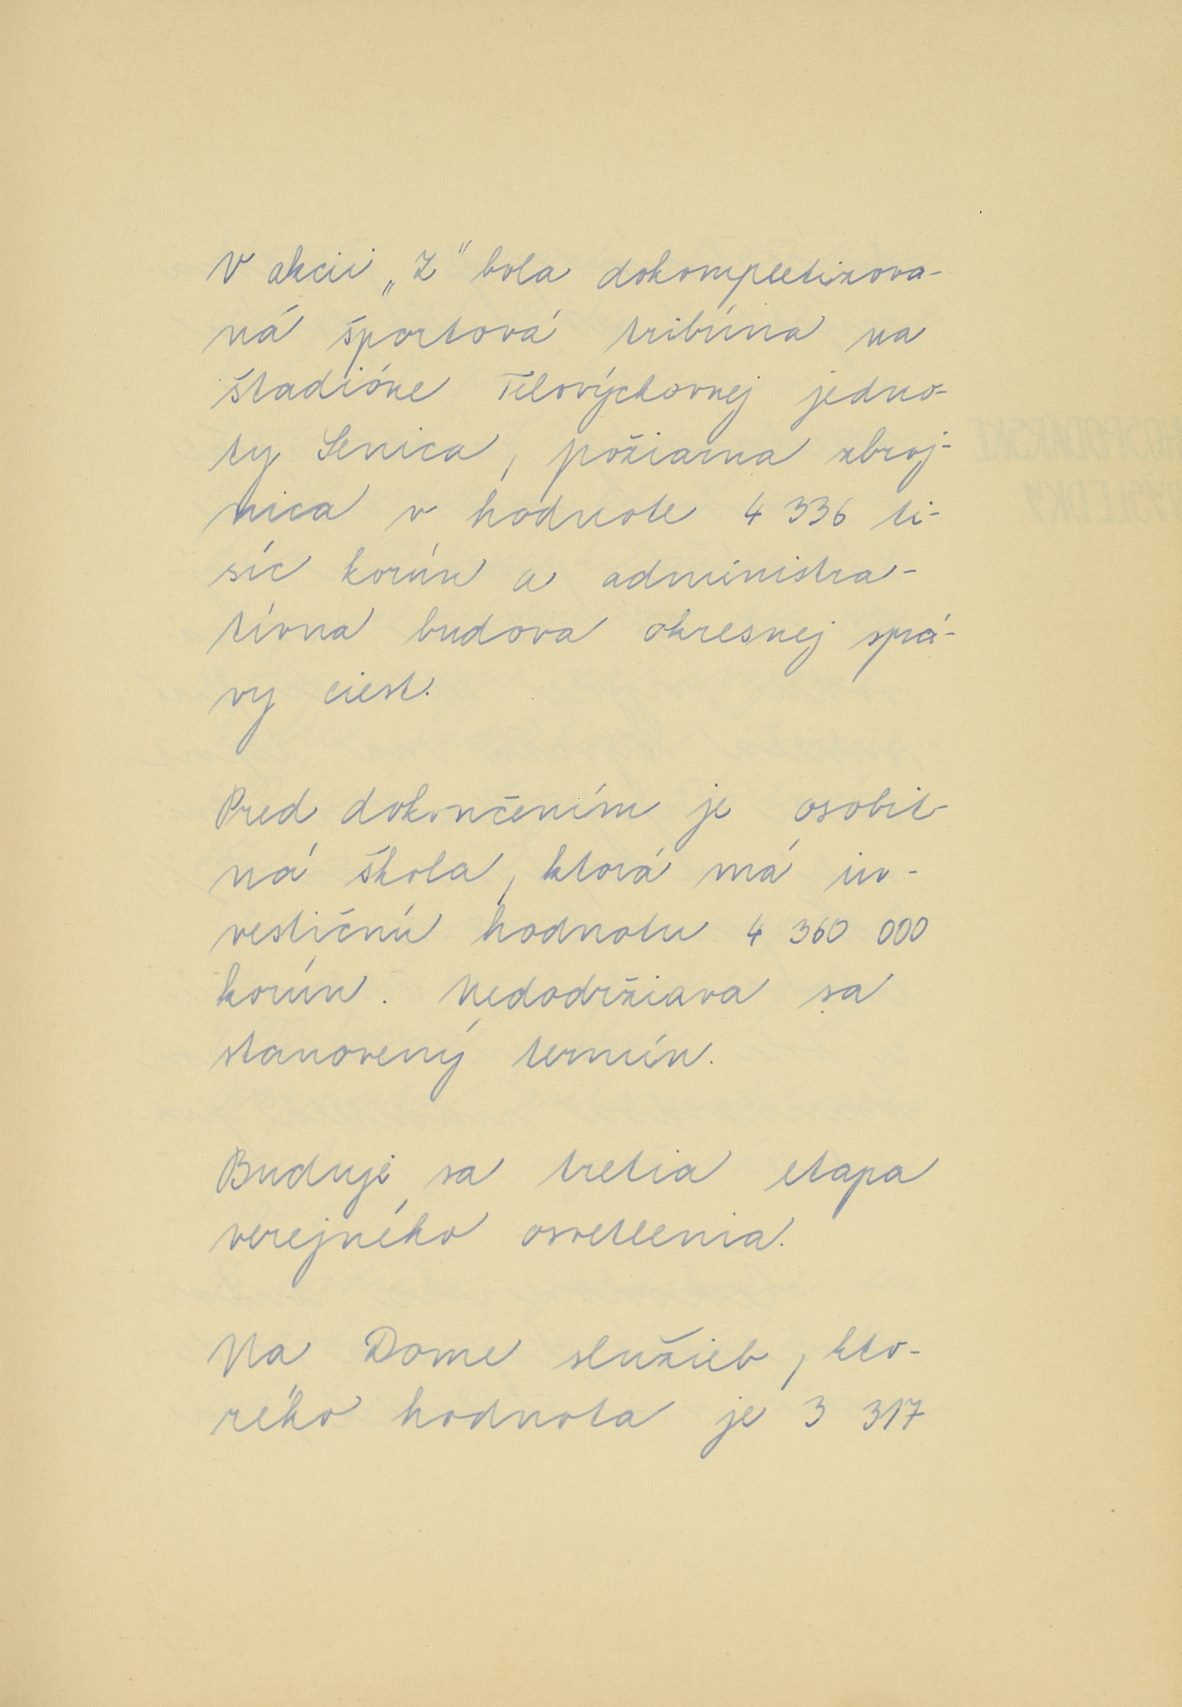 V akcii „Z" bola dokompletizova-
ná športová tribúna na
štadióne Telovýchovnej jedno-
ty Senica, požiarna zbroj-
nica v hodnote 4 336 ti-
síc korún a administra-
tívna budova okresnej sprá-
vy ciest.
Pred dokončením je osobit-
ná škola, ktorá má in-
vestičnú hodnotu 4 360 000
korún. Nedodržiava sa
stanovený termín.
Buduje sa tretia etapa
verejného osvetlenia.
Na Dome služieb, kto-
rého hodnota je 3 317